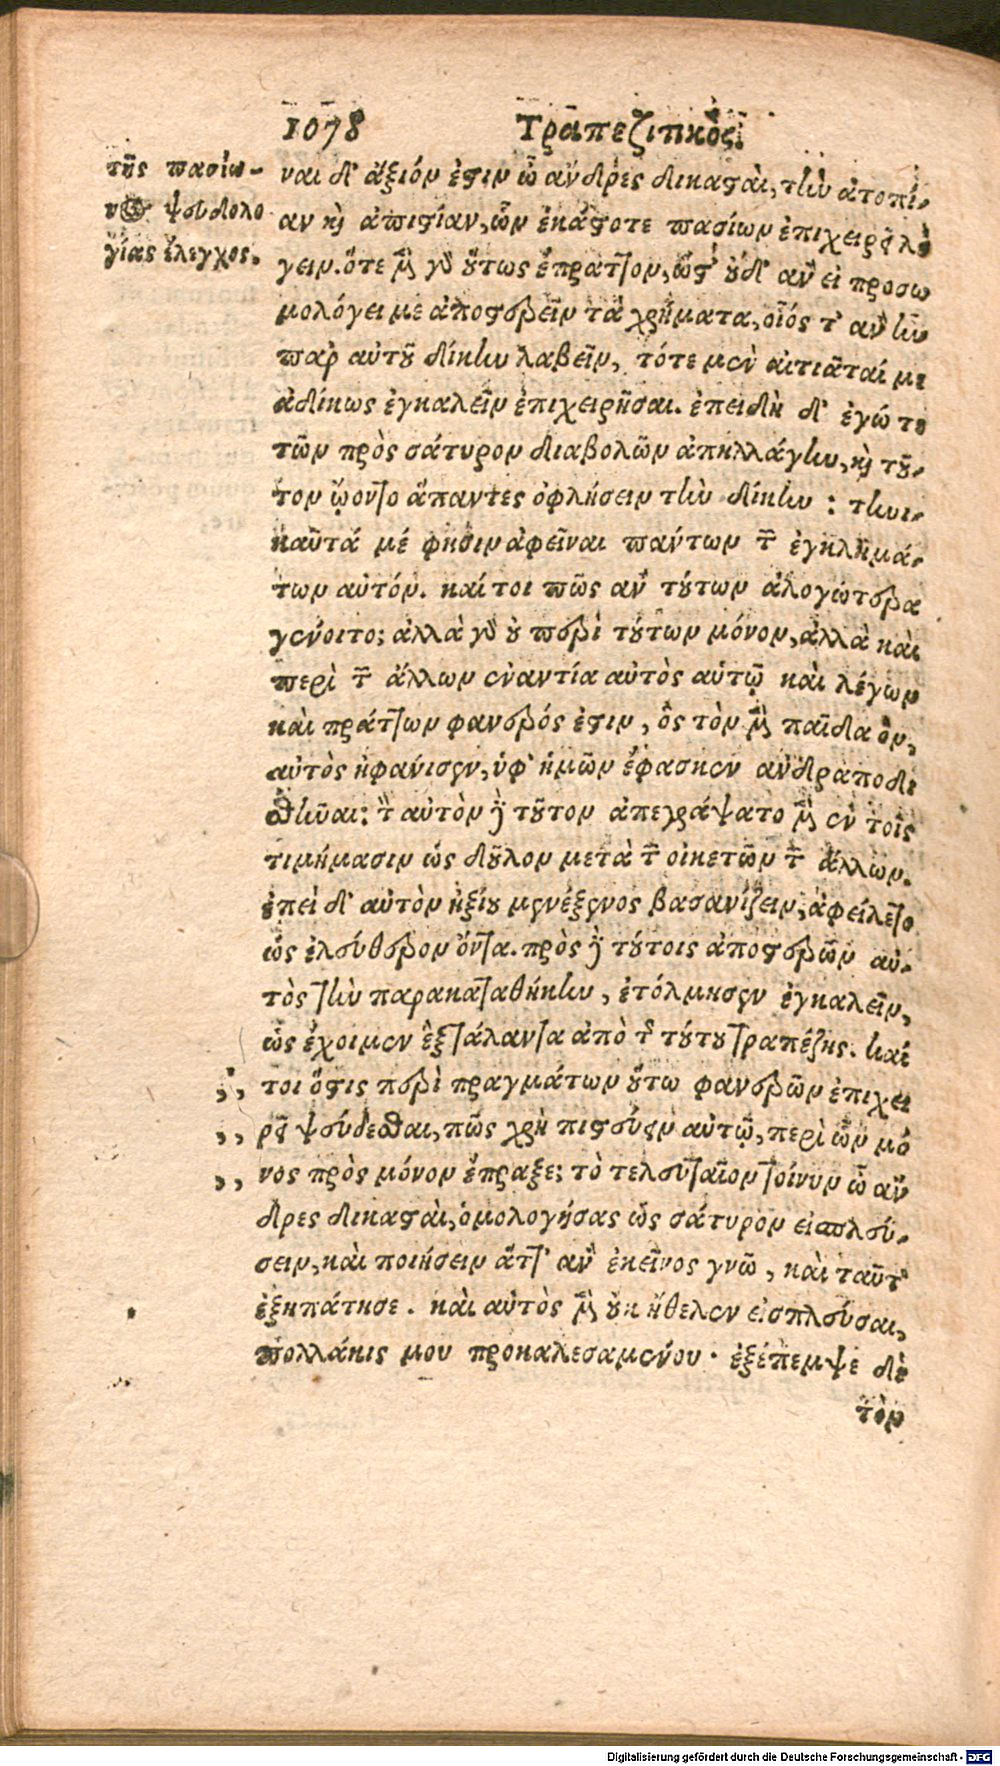 1078 Τραπεζιτικός.
τῆς πασίω-
νος ψευδολο
γίας ἔλεγχος.
ναι δ' ἄξιόν ἐστιν ὦ ἄνδρες δικασταὶ, τὴν ἀτοπί-
αν καὶ ἀπιστίαν, ὧν ἑκάστοτε πασίων ἐπιχειρεῖ λέ
γειν. ὅτε μὲν γὰρ οὕτως ἔπραττον, ὥστ' οὐδ' ἂν εἰ προσω
μολόγει με ἀποστερεῖν τὰ χρήματα, οἷός τ' ἂν ἦν
παρ' αὐτοῦ δίκην λαβεῖν, τότε μὲν αἰτιᾶταί με
ἀδίκως ἐγκαλεῖν ἐπιχειρῆσαι. ἐπειδὴ δ' ἐγώ τε
τῶν πρὸς σάτυρον διαβολῶν ἀπηλλάγην, καὶ τοῦ-
τον ᾤοντο ἅπαντες ὀφλήσειν τὴν δίκην : τηνι-
καῦτά μέ φησιν ἀφεῖναι πάντων τῶν ἐγκλημά-
των αὐτόν. καίτοι πῶς ἂν τούτων ἀλογώτερα
γένοιτο; ἀλλὰ γὰρ οὐ περὶ τούτων μόνον, ἀλλὰ καὶ
περὶ τῶν ἄλλων ἐναντία αὐτὸς αὑτῷ καὶ λέγων
καὶ πράττων φανερός ἐστιν, ὃς τὸν μὲν παῖδα ὃν,
αὐτὸς ἠφάνισεν, ὑφ' ἡμῶν ἔφασκεν ἀνδραποδι
σθῆναι: τὸν αὐτὸν δὲ τοῦτον ἀπεγράψατο μὲν ἐν τοῖς
τιμήμασιν ὡς δοῦλον μετὰ τῶν οἰκετῶν τῶν ἄλλων.
ἐπεὶ δ' αὐτὸν ἠξίου μενέξενος βασανίζειν, ἀφείλετο
ὡς ἐλεύθερον ὄντα. πρὸς δὲ τούτοις ἀποστερῶν αὐ-
τὸς τὴν παρακαταθήκην, ἐτόλμησεν ἐγκαλεῖν,
ὡς ἔχοιμεν ἓξ τάλαντα ἀπὸ τῆς τούτου τραπέζης. καί
,, τοι ὅστις περὶ πραγμάτων οὕτω φανερῶν ἐπιχει
,, ρεῖ ψεύδεσθαι, πῶς χρὴ πιστεύειν αὐτῷ, περὶ ὧν μό
,, νος πρὸς μόνον ἔπραξε; τὸ τελευταῖον τοίνυν ὦ ἄν
δρες δικασταὶ, ὁμολογήσας ὡς σάτυρον εἰσπλεύ-
σειν, καὶ ποιήσειν ἅττ' ἂν ἐκεῖνος γνῶ, καὶ ταῦτ'
ἐξηπάτησε. καὶ αὐτὸς μὲν οὐκ ἤθελεν εἰσπλεῦσαι,
πολλάκις μου προκαλεσαμένου · ἐξέπεμψε δὲ
τὸν
Digitalisierung gefördert durch die Deutsche Forschungsgemeinschaft - DFG